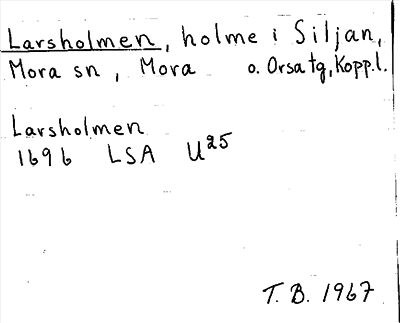 Larsholmen, holme i Siljan,
Mora sn, Mora o. Orsa tg, Kopp.l.
Larsholmen
1696 LSA U25
T.B. 1967